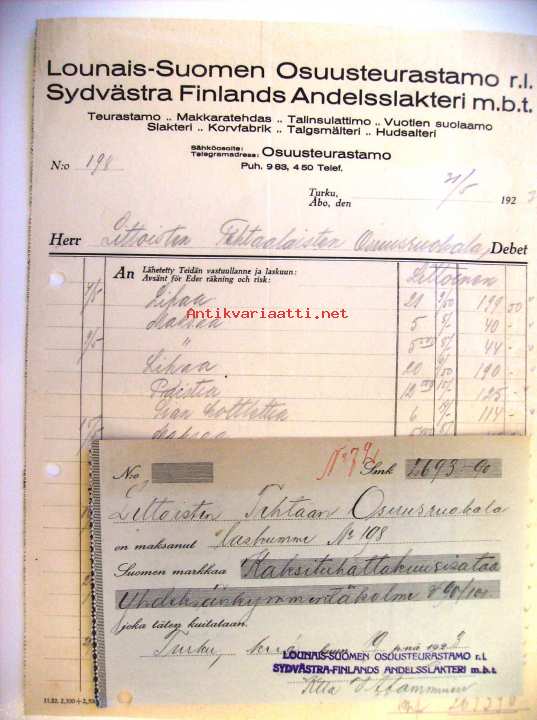 Lounais-Suomen Osuusteurastamo r.l.
Sydvästra Finlands Andelsslakteri m.b.t.
Teurastamo .. Makkaratehdas .. Talinsulattimo .. Vuotien suolaamo
Slakteri .. Korvfabrik .. Talgsmälteri .. Hudsalteri
Sähköosoite:
Telegramadress: Osuusteurastamo
Puh. 983, 450 Telef.
N:o 198
Turku,
Åbo, den 31/5 192
Herr Littoisten Tehtaalaisten Osuusruokala Debet
Littoinen
An Lähetetty Teidän vastuullanne ja laskuun:
Avsänt för Eder räkning och risk:
Lihaa
Antikvariaatti.net
Maksaa 5 40 -
" 44 -
Lihaa 20 190 -
Paistia 12 125 -
6 114 -
Maksaa
N:o Smk 2693-90
Littoisten Tehtaan Osuusruokala
on maksanut laskumme No 198
Suomen markkaa Kaksituhattakuusisataa
Yhdeksänkymmentäkolme & 90/100
joka täten kuitataan.
Turku, p:nä 192
LOUNAIS-SUOMEN OSUUSTEURASTAMO r.l.
SYDVÄSTRA-FINLANDS ANDELSSLAKTERI m.b.t.